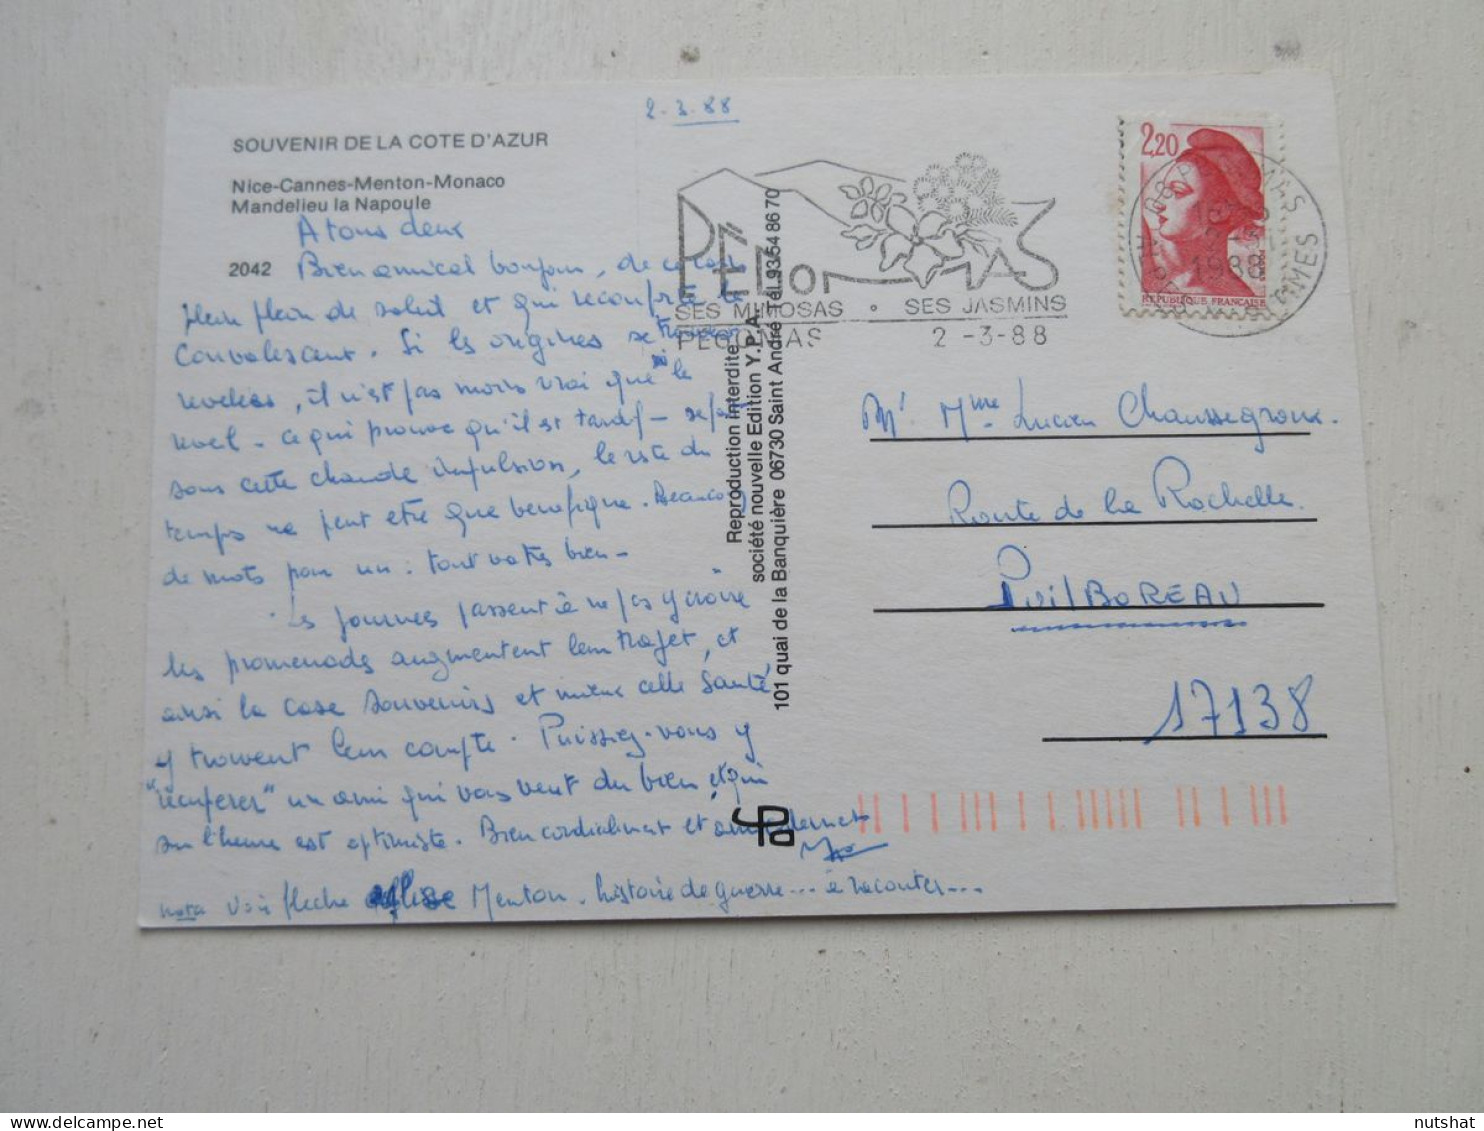 2.3.88
SOUVENIR DE LA COTE D'AZUR
Nice-Cannes-Menton-Monaco
Mandelieu la Napoule
2042
A tous deux
Bien amical bonjour, de ce
plein de soleil et qui reconforte le
convalescent. Si les origines se
, il n'est pas moins vrai que le
reveil - ce qui prouve qu'il est tardif - se fait
sous cette chaude impulsion, le reste du
temps ne peut etre que benefique. Beaucoup
de mots pour un : tout va très bien -
Les journees passent à ne pas y croire
les promenades augmentent leur trajet, et
ainsi la case souvenirs et mieux celle Santé
y trouvent leur compte. Puissiez-vous y
"récuperer" un ami qui vous veut du bien et qui
sur l'heure est optimiste. Bien cordialement et
nota Voir fleche Menton. histoire de guerre... à raconter...
PÉGOMAS
SES MIMOSAS • SES JASMINS
PEGOMAS 2 -3-88
2,20
REPUBLIQUE FRANÇAISE
1988
Reproduction interdite
société nouvelle Edition Y.P.A.
101 quai de la Banquière 06730 Saint André - Tél. 93/54 86 70
Mr Mme Lucien Chaussegroux.
Route de la Rochelle.
PuilBOREAU
17138